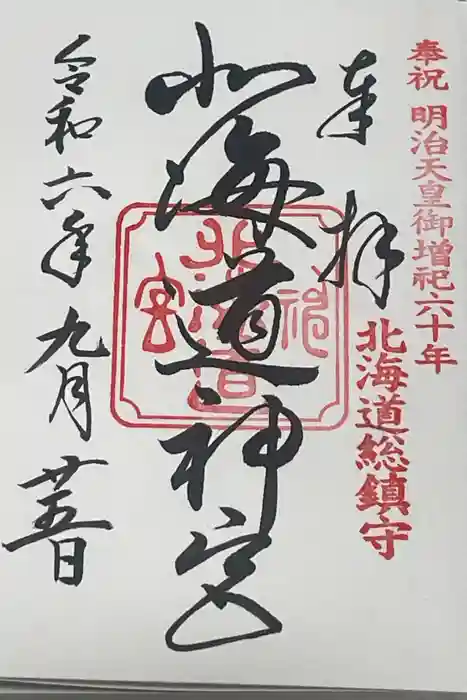 奉祝 明治天皇御増祀六十年
北海道総鎮守
奉拝
北海道神宮
北海道神宮
令和六年九月廿五日